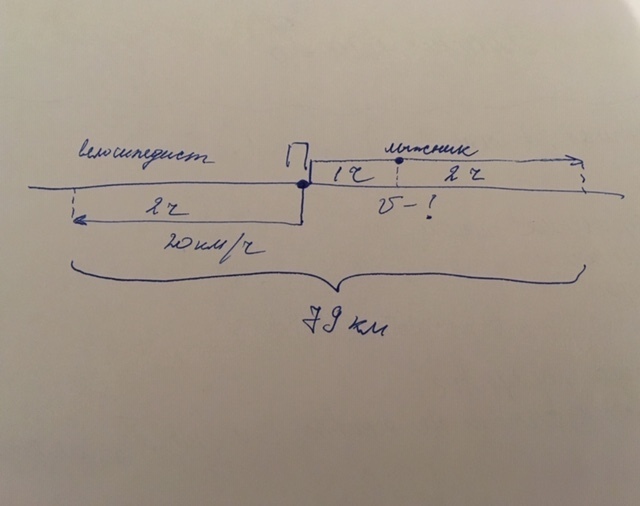 велосипедист П лыжник
1ч 2ч
2ч v-!
20км/ч
79 км